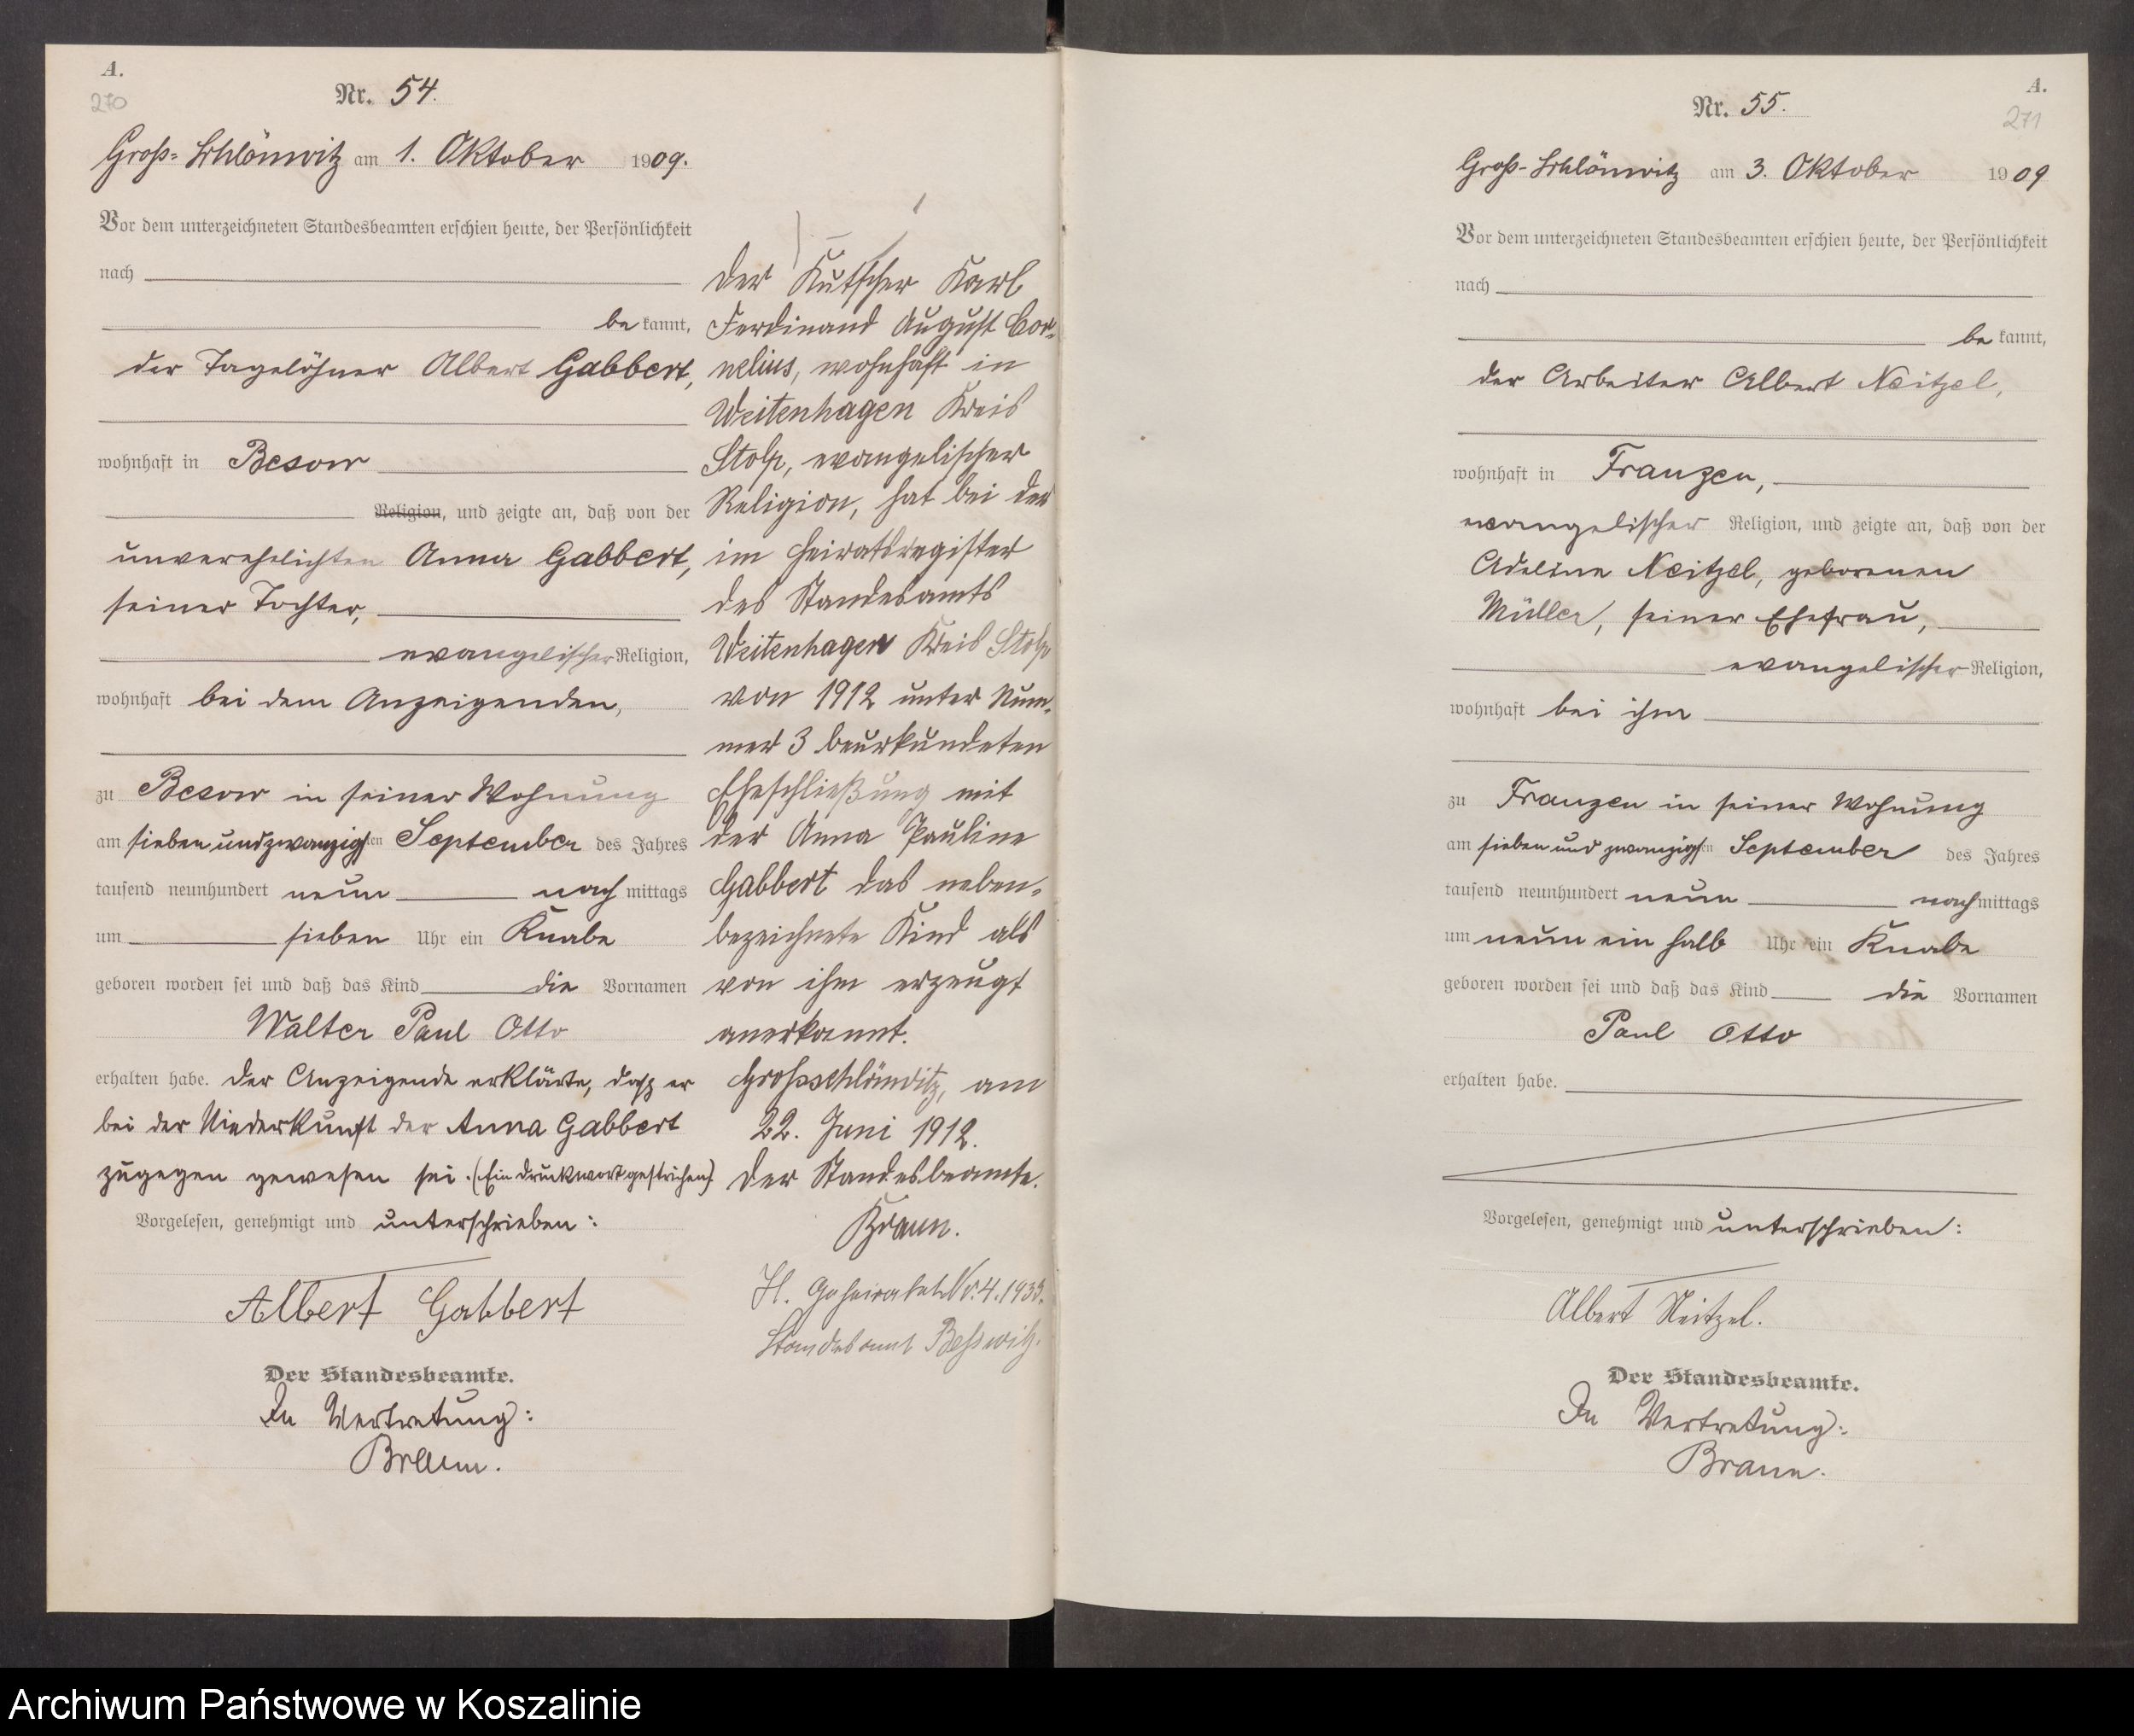 A.
270
Nr. 54.
Groß-Schlönwitz am 1. Oktober 1909.
Vor dem unterzeichneten Standesbeamten erschien heute, der Persönlichkeit
nach
be kannt,
der Tagelöhner Albert Gabbert,
wohnhaft in Besow
Religion, und zeigte an, daß von der
unverehelichten Anna Gabbert,
seiner Tochter,
evangelischer Religion,
wohnhaft bei dem Anzeigenden,
zu Besow in seiner Wohnung
am siebenundzwanzigsten September des Jahres
tausend neunhundert neun nach mittags
um sieben Uhr ein Knabe
geboren worden sei und daß das Kind die Vornamen
Walter Paul Otto
erhalten habe. Der Anzeigende erklärte, daß er
bei der Niederkunft der Anna Gabbert
zugegen gewesen sei. (Ein Druckwort gestrichen)
Vorgelesen, genehmigt und unterschrieben:
Albert Gabbert
Der Standesbeamte.
In Vertretung:
Braun.
Der Kutscher Karl
Ferdinand August Cor-
nelius, wohnhaft in
Weitenhagen Kreis
Stolp, evangelischer
Religion, hat bei der
im Heiratsregister
des Standesamts
Weitenhagen Kreis Stolp
von 1912 unter Num-
mer 3 beurkundeten
Eheschließung mit
der Anna Pauline
Gabbert das neben-
bezeichnete Kind als
von ihm erzeugt
anerkannt.
Großschlönwitz, am
22. Juni 1912.
Der Standesbeamte.
Braun.
H. Geheiratet Nr. 4. 1933.
Standesamt Beßwitz.
A.
271
Nr. 55.
Groß-Schlönwitz am 3. Oktober 1909
Vor dem unterzeichneten Standesbeamten erschien heute, der Persönlichkeit
nach
be kannt,
der Arbeiter Albert Neitzel,
wohnhaft in Franzen,
evangelischer Religion, und zeigte an, daß von der
Adeline Neitzel, geborenen
Müller, seiner Ehefrau,
evangelischer Religion,
wohnhaft bei ihm
zu Franzen in seiner Wohnung
am siebenundzwanzigsten September des Jahres
tausend neunhundert neun nach mittags
um neun ein halb Uhr ein Knabe
geboren worden sei und daß das Kind die Vornamen
Paul Otto
erhalten habe.
Vorgelesen, genehmigt und unterschrieben:
Albert Neitzel.
Der Standesbeamte.
In Vertretung:
Braun.
Archiwum Państwowe w Koszalinie